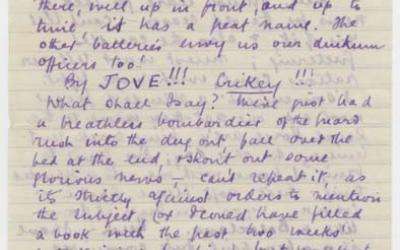 there, well up in front, and up to
time it has a great name. The
other batteries envy us our dinkum
officers too!
By JOVE!!! Crikey!!!
What shall I say? We've just had
a breathless bombardier of the guard
rush into the dug out, fall over the
bed at the end, & shout out some
glorious news – can't repeat it, as
its strictly against orders to mention
the subject, or I could have filled
a book with the past two weeks'